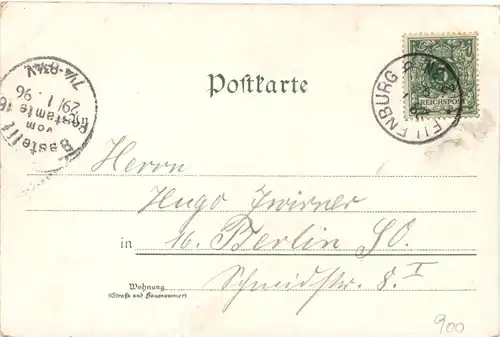 Postkarte
5
REICHSPOST
EILENBURG
Bestellt
vom
Postamte 16
29/1.96
7¼-8¼V.
Herrn
Hugo Zwirner
in 16. Berlin SO.
Schmidstr. 8. I
Wohnung
(Straße und Hausnummer)
900